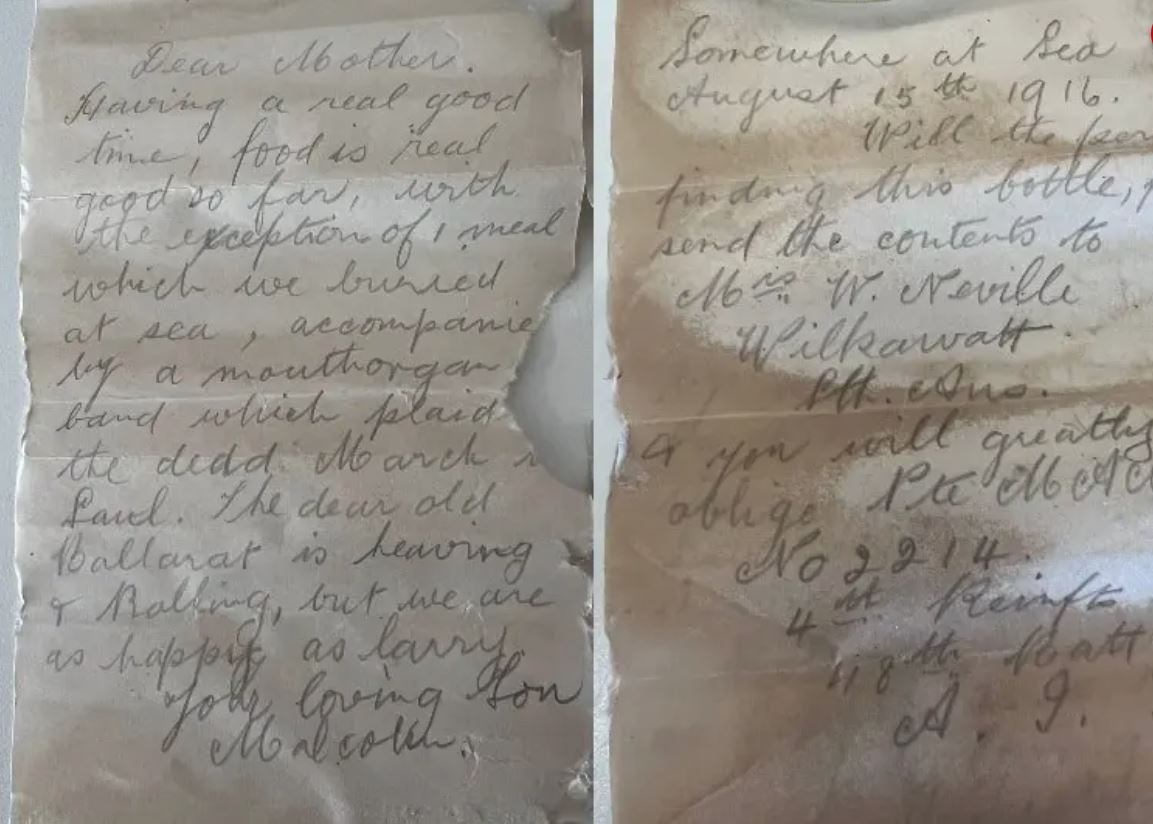 Dear Mother.
Having a real good
time, food is real
good so far, with
the exception of 1 meal
which we buried
at sea, accompanie
by a mouthorgan
band which plaid
the dedd March
Saul. The dear old
Ballarat is heaving
& Rolling, but we are
as happy as larry.
Your loving Son
Malcolm.
Somewhere at Sea
August 15th 1916.
Will the per
finding this bottle, p
send the contents to
Mrs W. Neville
Wilkawatt
Sth. Aus.
& you will greatly
oblige Pte M A
No 2214.
4th Reinfts
48th Batt
A. I.